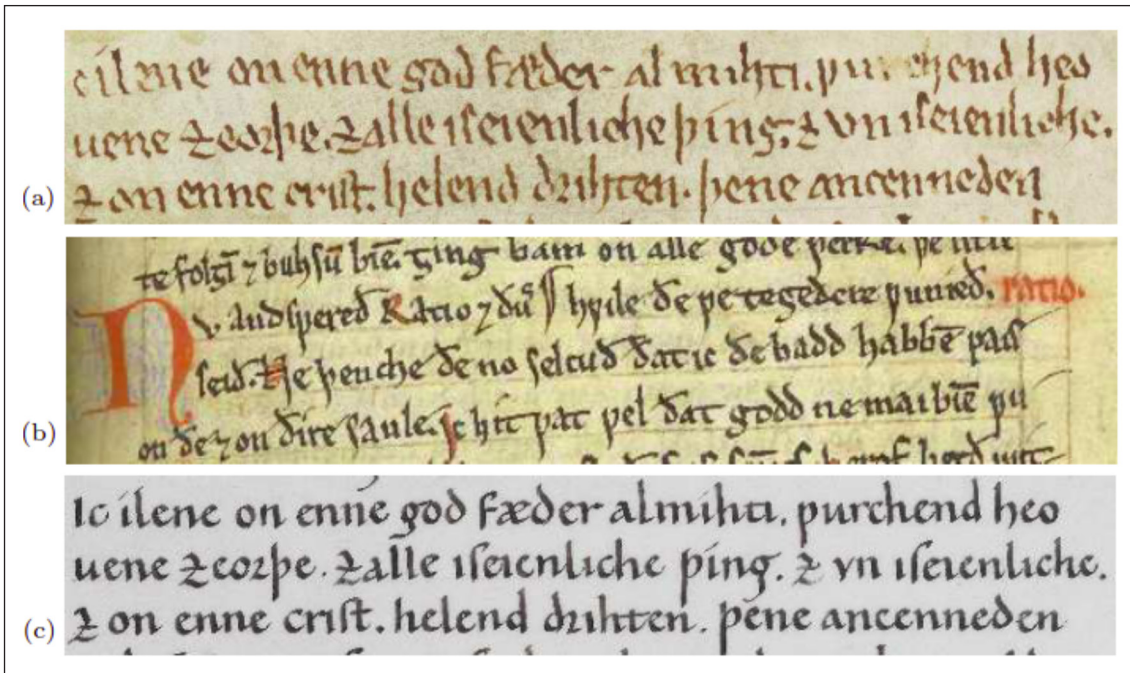 ilene on enne god fæder almihti. hend heo
uene ⁊ eorþe. ⁊ alle iſeienliche þing. ⁊ vn iſeienliche.
(a) ⁊ on enne criſt. helend drihten. þene ancenneden
te folgī ⁊ buhſū biē. bam on alle gode ƿerke.
N v. andſƿereð Ratio ⁊ hƿile ðe ƿe tegedere ƿunieð. ratio.
ſeið. Ne þenche ðe no ſelcuð ðat ic ðe badd habbē paiſ
(b) on ðe ⁊ on ðire ſaule. Ic hit ƿat ƿel ðat godd ne mai biē ƿu
Ic ilene on enne god fæder almihti. ƿurchend heo
uene ⁊ eorþe. ⁊ alle iſeienliche þing. ⁊ vn iſeienliche.
(c) ⁊ on enne criſt. helend drihten. þene ancenneden